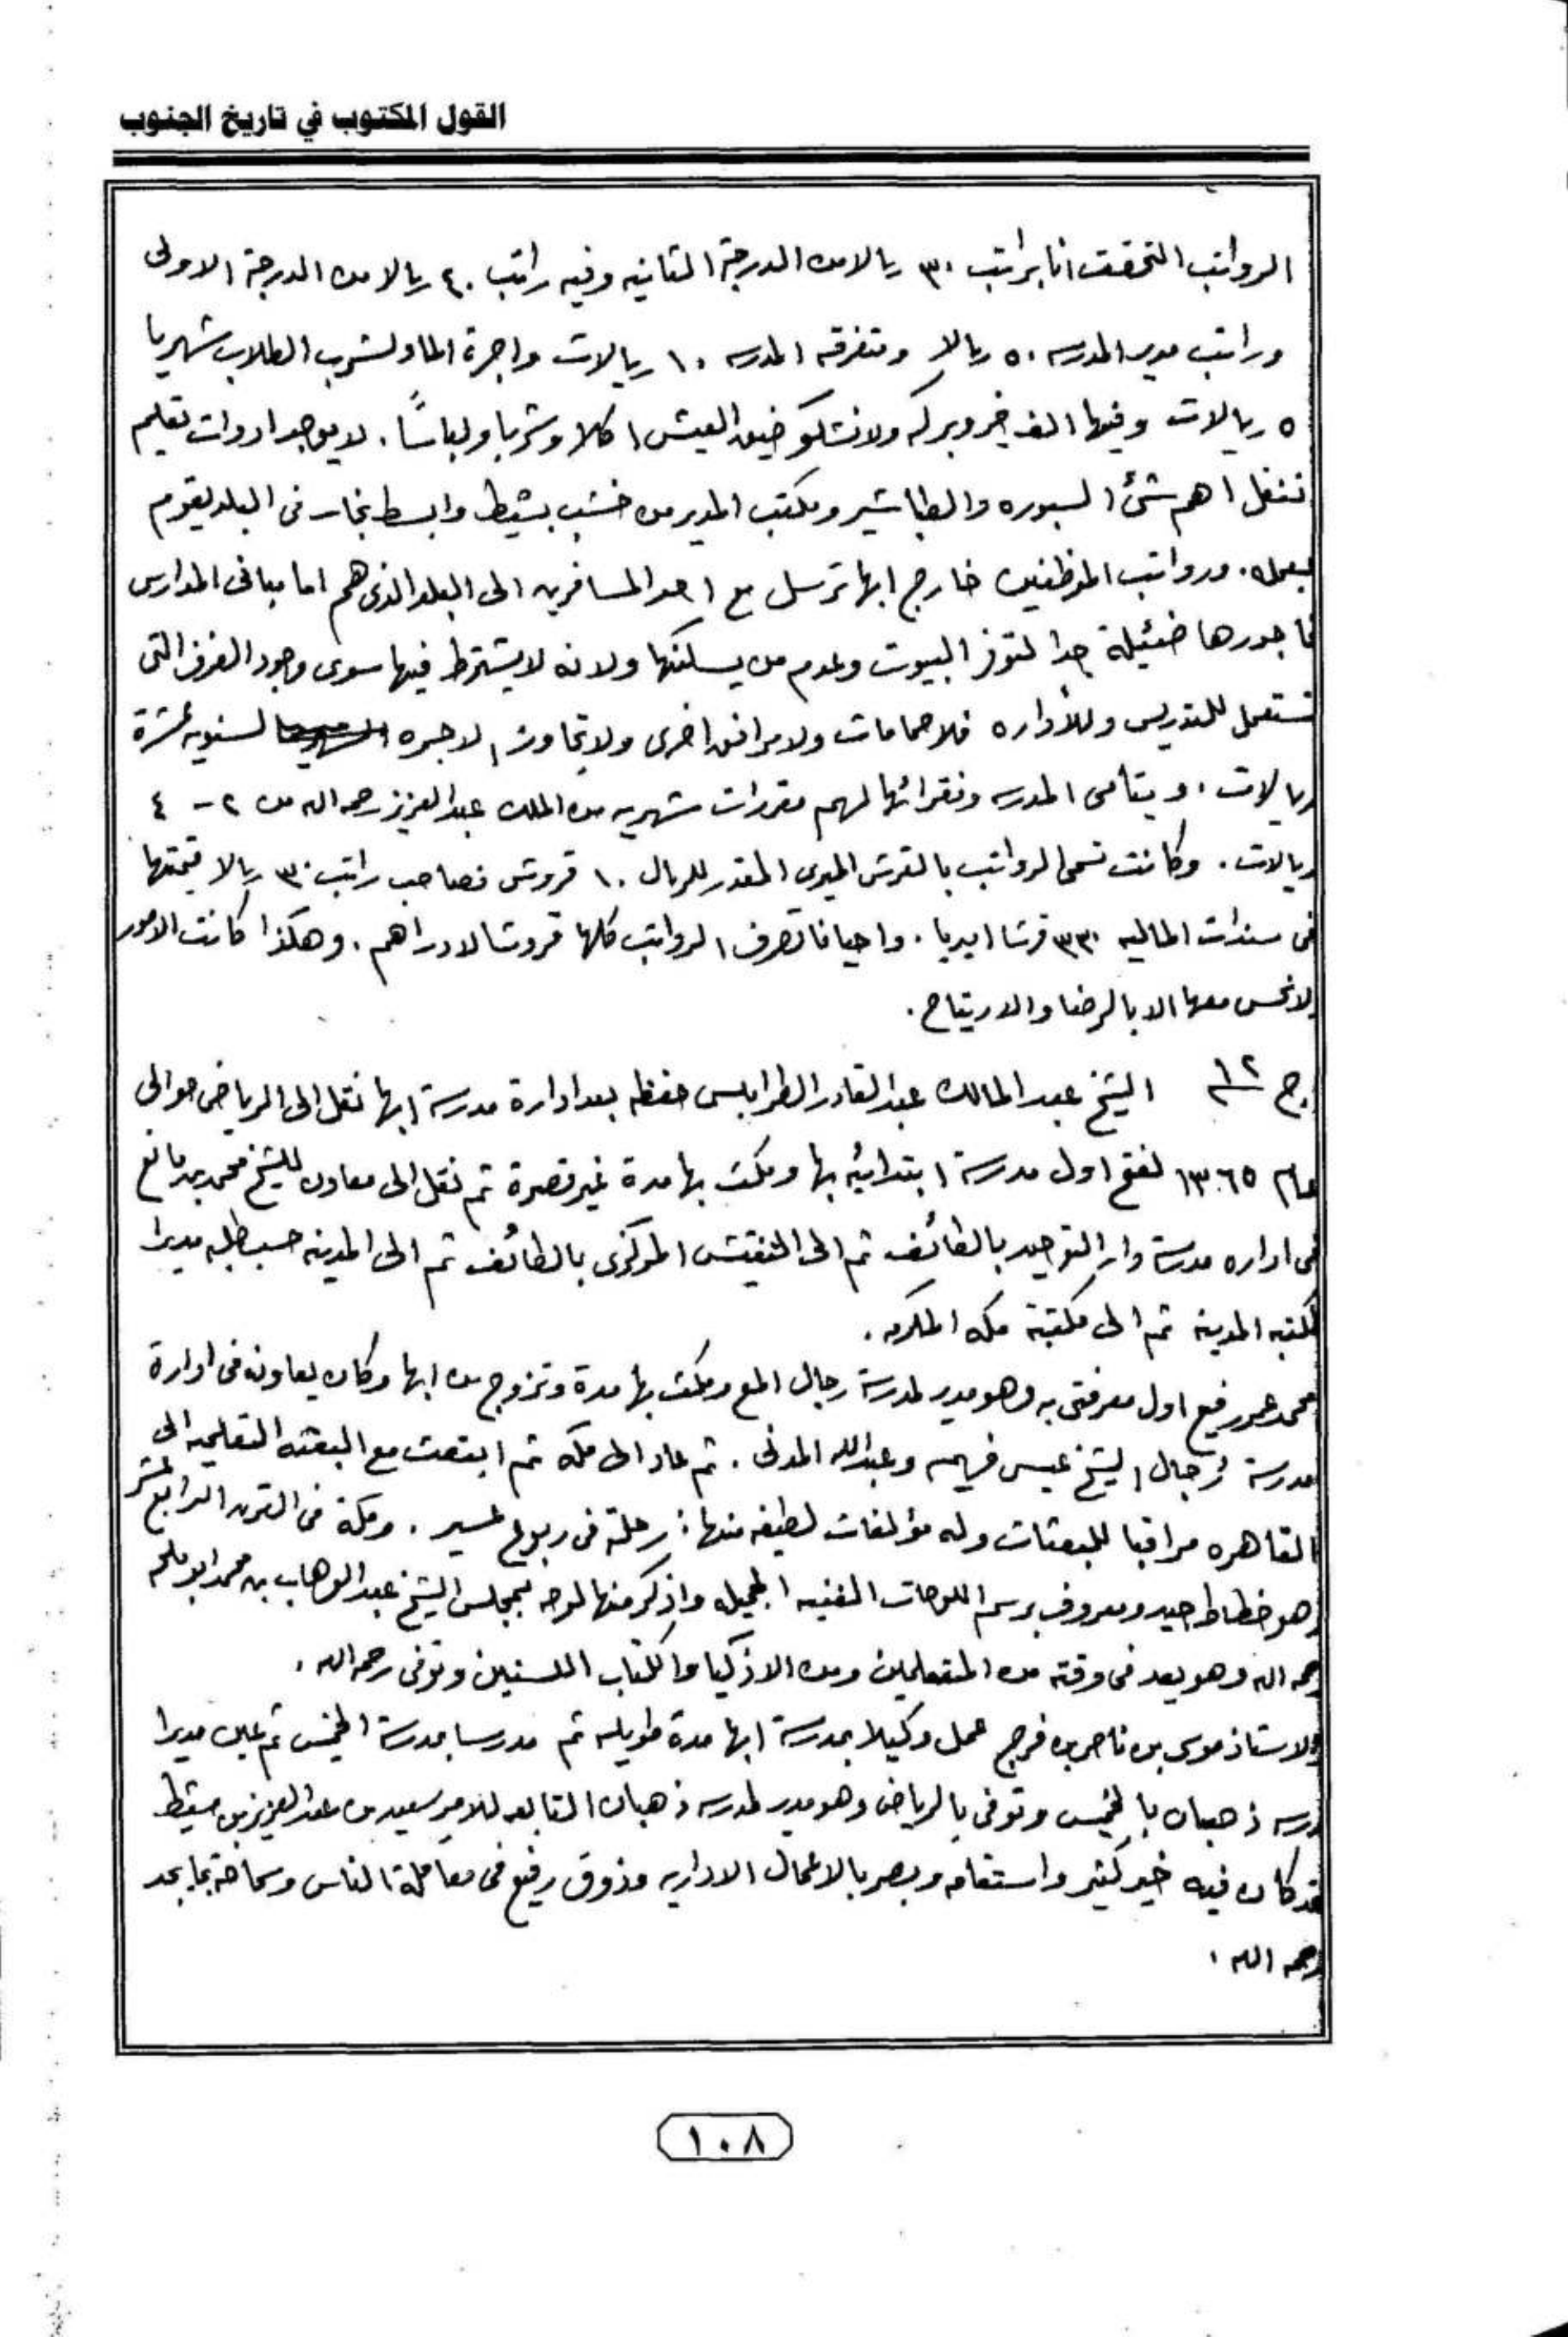 القول المكتوب في تاريخ الجنوب
الرواتب التحقت انا براتب ٣٠ ريالا من الدرجة الثانيه وفيه راتب ٤٠ ريالا من الدرجة الاولى
وراتب مدير المدرسه ٥٠ ريالا ومتفرقه المدرسه ١٠ ريالات واجرة الماء لشرب الطلاب شهريا
٥ ريالات وفيها الف خير وبركه ولا نشكو ضيق العيش اكلا وشربا ولباسًا. لا يوجد ادوات تعليم
تنقل اهم شئ السبوره والطباشير ومكتب المدير من خشب بسيط وابسط نجار في البلد يقوم
بعمله. ورواتب الموظفين خارج ابها ترسل مع احد المسافرين الى البلد الذى هم اما مبانى المدارس
فاجورها ضئيلة جدا لتوفر البيوت وعدم من يسكنها ولانه لا يشترط فيها سوى وجود الغرف التى
تستعمل للتدريس وللأداره فلا حمامات ولا مرافق اخرى ولا تجاوز الاجره السنويه عشرة
ريالات. ويتامى المدرسه وفقرائها لهم مقررات شهريه من الملك عبد العزيز رحمه الله من ٢ – ٤
ريالات. وكانت تسمى الرواتب بالقرش الميرى المقدر للريال ١٠ قروش فصاحب راتب ٣٠ ريالا قيمتها
فى سندات الماليه ٣٣٠ قرشا اميريا. واحيانا تصرف الرواتب كلها قروشا لا دراهم. وهكذا كانت الامور
لا نحس معها الا بالرضا والارتياح.
ج ١٢ الشيخ عبد المالك عبد القادر الطرابلسى حفظه بعد ادارة مدرسة ابها نقل الى الرياض حوالى
عام ١٣٦٥ لفتح اول مدرسة ابتدائيه بها ومكث بها مدة غير قصيرة ثم نقل الى معاون للشيخ محمد بن مانع
فى اداره مدرسة دار التوحيد بالطائف ثم الى التفتيش المركزى بالطائف ثم الى المدينه حسب طلبه مديرا
لمكتبه المدينه ثم الى مكتبة مكه المكرمه.
محمد عمر رفيع اول معرفتى به وهو مدير لمدرسة رجال المع ومكث بها مدة وتزوج من ابها وكان يعاونه فى ادارة
مدرسة رجال الشيخ عيسى فهيم وعبد الله المدنى. ثم عاد الى مكه ثم ابتعث مع البعثه التعليميه الى
القاهره مراقبا للبعثات وله مؤلفات لطيفه منها: رحلة فى ربوع عسير. ومكة فى القرن الرابع عشر
وهو خطاط جيد ومعروف برسم اللوحات الفنيه الجميله واذكر منها لوحه بمجلس الشيخ عبد الوهاب بن محمد ابو ملحه
رحمه الله وهو يعد فى وقته من المتعلمين ومن الاذكيا والكتاب اللسنين وتوفى رحمه الله.
والاستاذ موسى بن ناصر بن فرج عمل وكيلا بمدرسة ابها مدة طويله ثم مدرسا بمدرسة الخميس ثم عين مديرا
لمدرسه ذهبان بالخميس وتوفى بالرياض وهو مدير لمدرسه ذهبان التابعه للامير سعيد بن عبد العزيز بن مشيط
قد كان فيه خير كثير واستقامه وبصر بالاعمال الاداريه وذوق رفيع فى معاملة الناس وسماحة
رحمه الله.
١٠٨